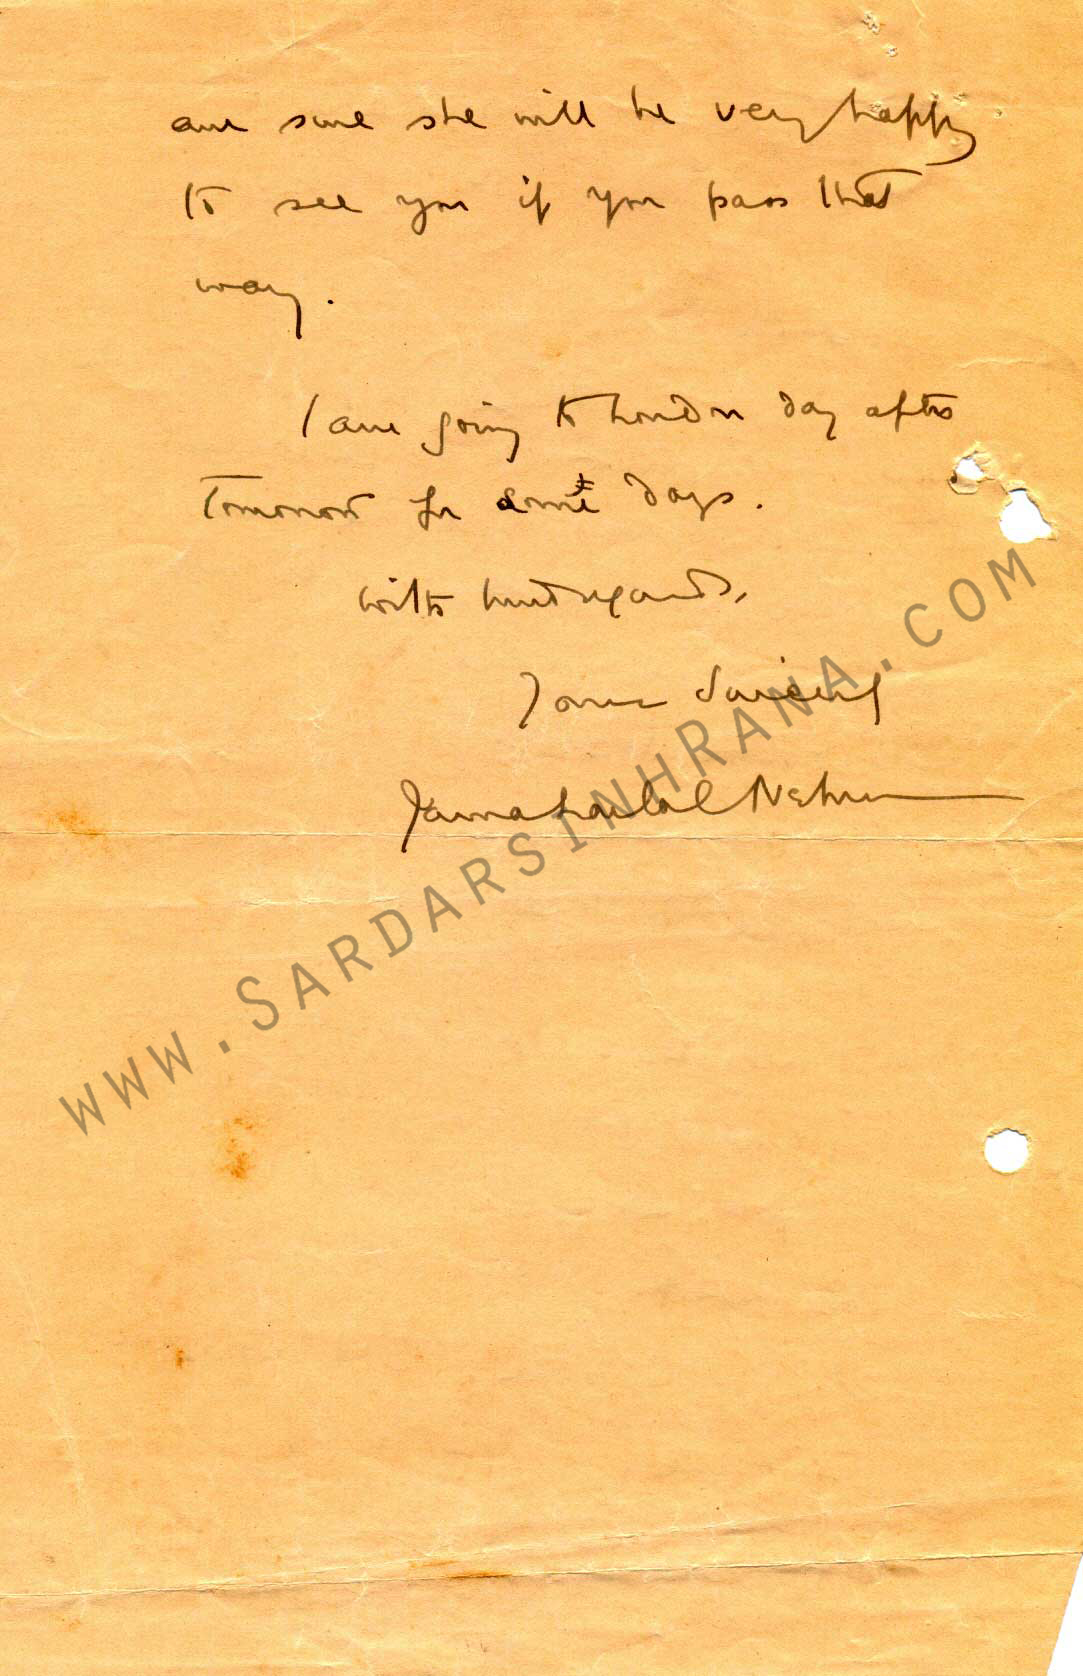 am sure she will be very happy
to see you if you pass that
way.
I am going to London day after
tomorrow for some days.
With kind regards,
Yours sincerely
Jawaharlal Nehru
WWW.SARDARSINHRANA.COM